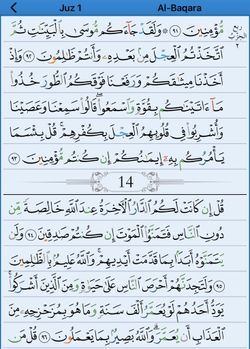 Juz 1 Al-Baqara
مُّؤْمِنِينَ ۝٩١ ۞ وَلَقَدْ جَآءَكُم مُّوسَىٰ بِٱلْبَيِّنَـٰتِ ثُمَّ
ٱتَّخَذْتُمُ ٱلْعِجْلَ مِنۢ بَعْدِهِۦ وَأَنتُمْ ظَـٰلِمُونَ ۝٩٢ وَإِذْ
أَخَذْنَا مِيثَـٰقَكُمْ وَرَفَعْنَا فَوْقَكُمُ ٱلطُّورَ خُذُوا۟
مَآ ءَاتَيْنَـٰكُم بِقُوَّةٍ وَٱسْمَعُوا۟ ۖ قَالُوا۟ سَمِعْنَا وَعَصَيْنَا
وَأُشْرِبُوا۟ فِى قُلُوبِهِمُ ٱلْعِجْلَ بِكُفْرِهِمْ ۚ قُلْ بِئْسَمَا
يَأْمُرُكُم بِهِۦٓ إِيمَـٰنُكُمْ إِن كُنتُم مُّؤْمِنِينَ ۝٩٣
14
قُلْ إِن كَانَتْ لَكُمُ ٱلدَّارُ ٱلْـَٔاخِرَةُ عِندَ ٱللَّهِ خَالِصَةً مِّن
دُونِ ٱلنَّاسِ فَتَمَنَّوُا۟ ٱلْمَوْتَ إِن كُنتُمْ صَـٰدِقِينَ ۝٩٤ وَلَن
يَتَمَنَّوْهُ أَبَدًۢا بِمَا قَدَّمَتْ أَيْدِيهِمْ ۗ وَٱللَّهُ عَلِيمٌۢ بِٱلظَّـٰلِمِينَ
۝٩٥ وَلَتَجِدَنَّهُمْ أَحْرَصَ ٱلنَّاسِ عَلَىٰ حَيَوٰةٍ وَمِنَ ٱلَّذِينَ أَشْرَكُوا۟ ۚ
يَوَدُّ أَحَدُهُمْ لَوْ يُعَمَّرُ أَلْفَ سَنَةٍ وَمَا هُوَ بِمُزَحْزِحِهِۦ مِنَ
ٱلْعَذَابِ أَن يُعَمَّرَ ۗ وَٱللَّهُ بَصِيرٌۢ بِمَا يَعْمَلُونَ ۝٩٦ قُلْ مَن